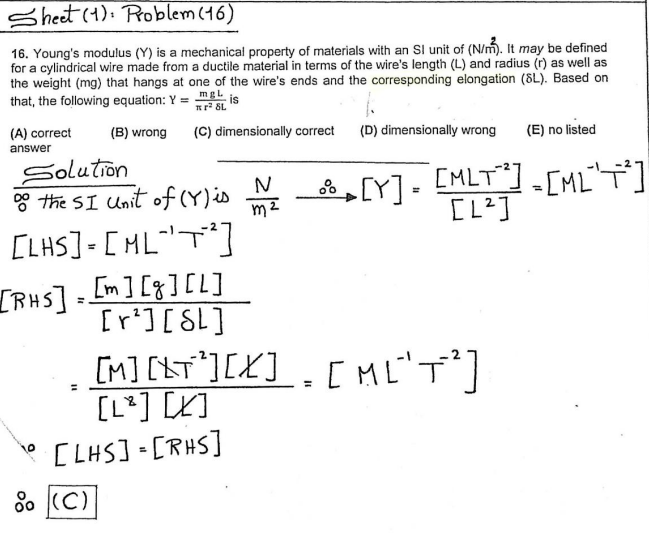 Sheet (1): Problem (16)
16. Young's modulus (Y) is a mechanical property of materials with an SI unit of (N/m²). It may be defined
for a cylindrical wire made from a ductile material in terms of the wire's length (L) and radius (r) as well as
the weight (mg) that hangs at one of the wire's ends and the corresponding elongation (δL). Based on
that, the following equation: Y = m g L / π r² δL is
(A) correct (B) wrong (C) dimensionally correct (D) dimensionally wrong (E) no listed
answer
Solution
∵ the SI Unit of (Y) is N/m² ∴ → [Y] = [MLT⁻²]/[L²] = [ML⁻¹T⁻²]
[LHS] = [ML⁻¹T⁻²]
[RHS] = [m][g][L]/[r²][δL]
= [M][LT⁻²][L]/[L²][L] = [ML⁻¹T⁻²]
∵ [LHS] = [RHS]
∴ (C)